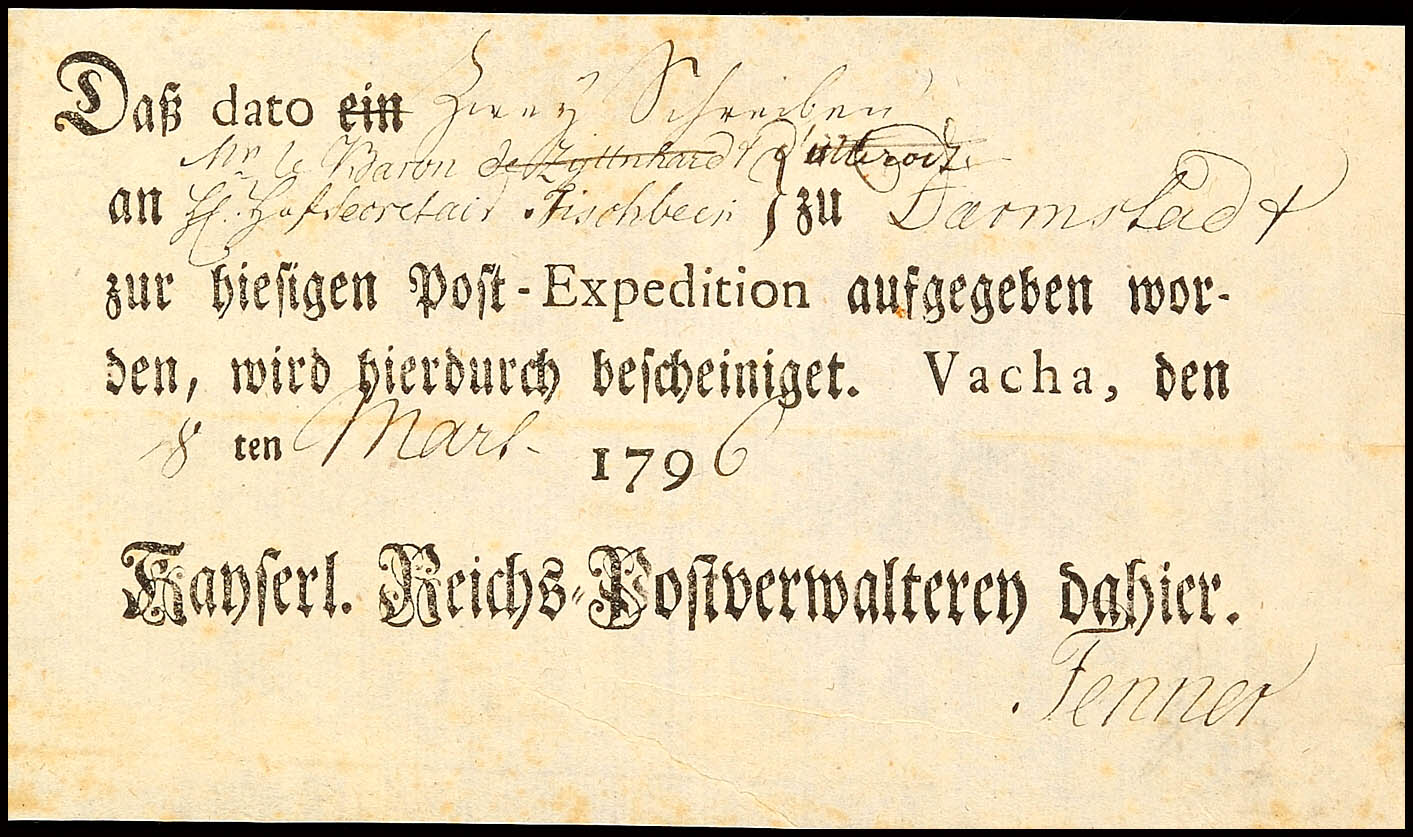 Daß dato ein Zwey Schreiben
Mr. le Baron
an H. Hofsecretair Tischbein } zu Darmstadt
zur hiesigen Post-Expedition aufgegeben wor-
den, wird hierdurch bescheiniget. Vacha, den
8 ten Mart. 1796
Kayserl. Reichs-Postverwalterey dahier.
Fenner